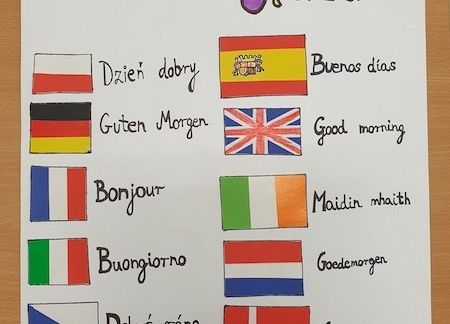 Dzień dobry
Buenos días
Guten Morgen
Good morning
Bonjour
Maidin mhaith
Buongiorno
Goedemorgen